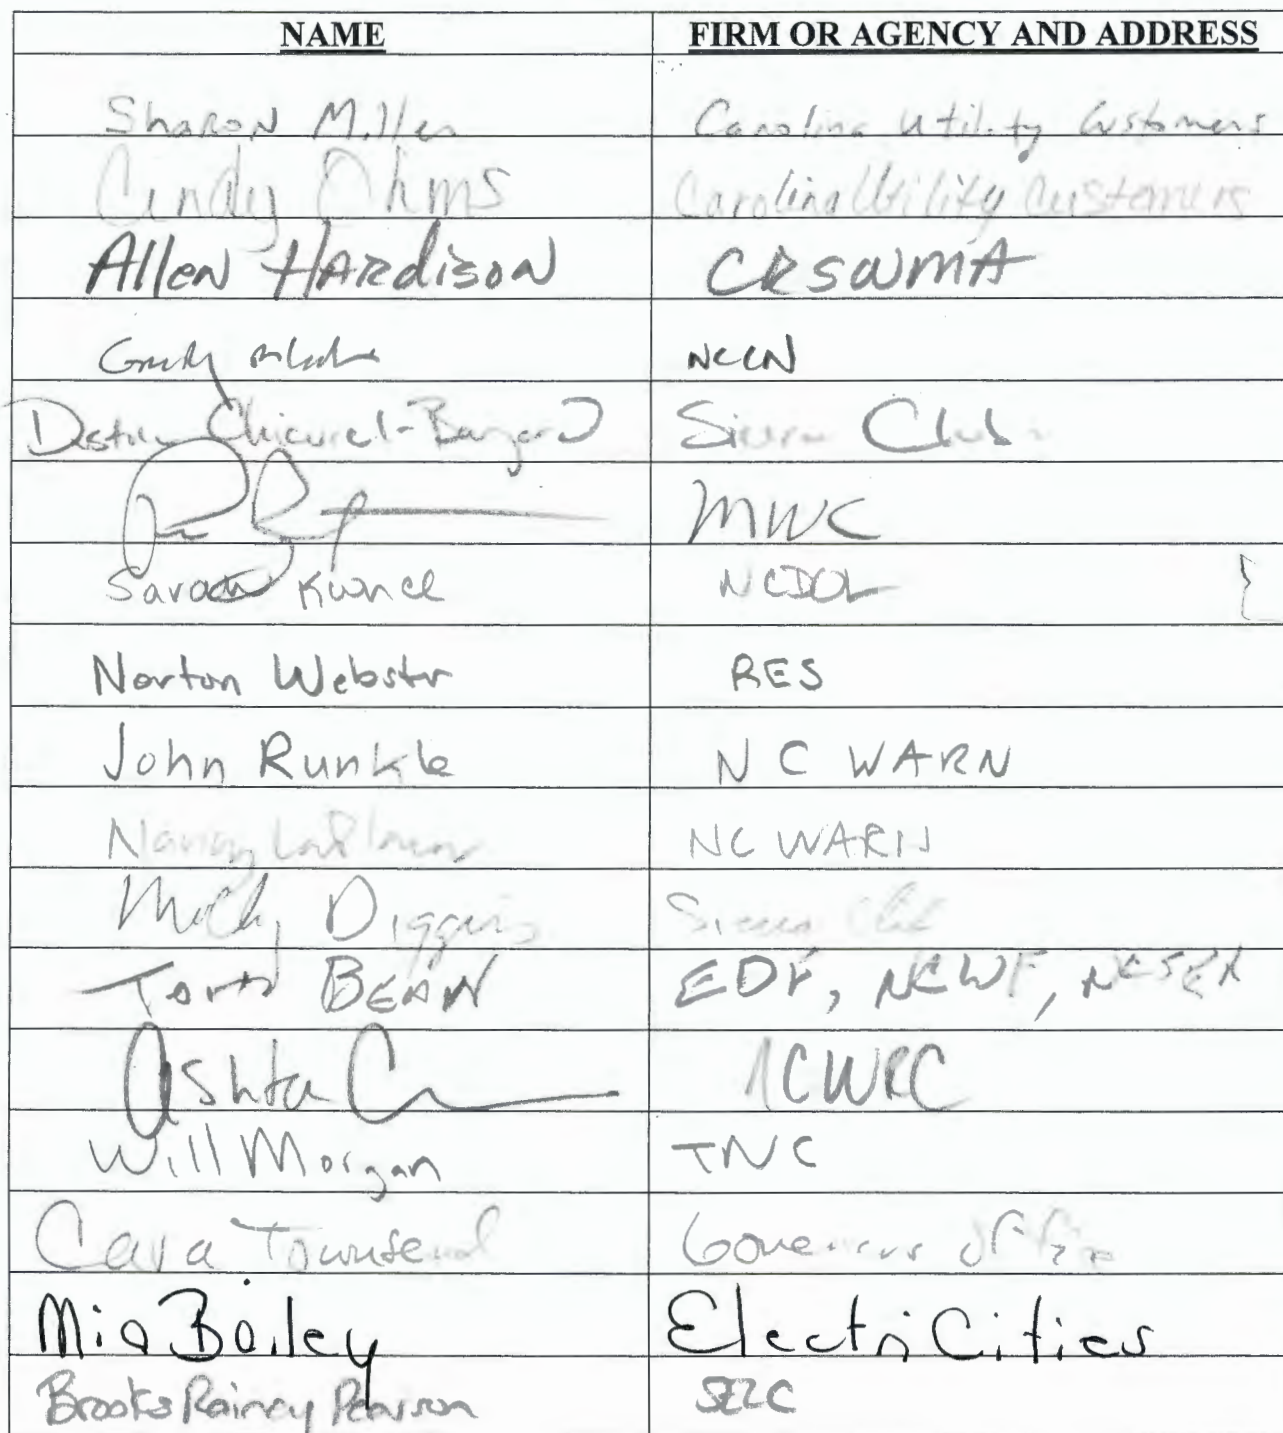 NAME FIRM OR AGENCY AND ADDRESS
Sharon Miller Carolina Utility Customers
Cindy Ohms Carolina Utility Customers
Allen HARdison CRSWMA
NCCN
Dustin Chicurel-Bayard Sierra Club
MWC
Sarah NCDOL
Norton Webster RES
John Runkle NC WARN
Nancy NC WARN
Molly Diggins Sierra Club
BEAN EDF, NCWF, NCSEA
NCWRC
Will Morgan TNC
Cara Townsend Governors Office
Mia Bailey ElectriCities
Brooks Rainey Pearson SELC